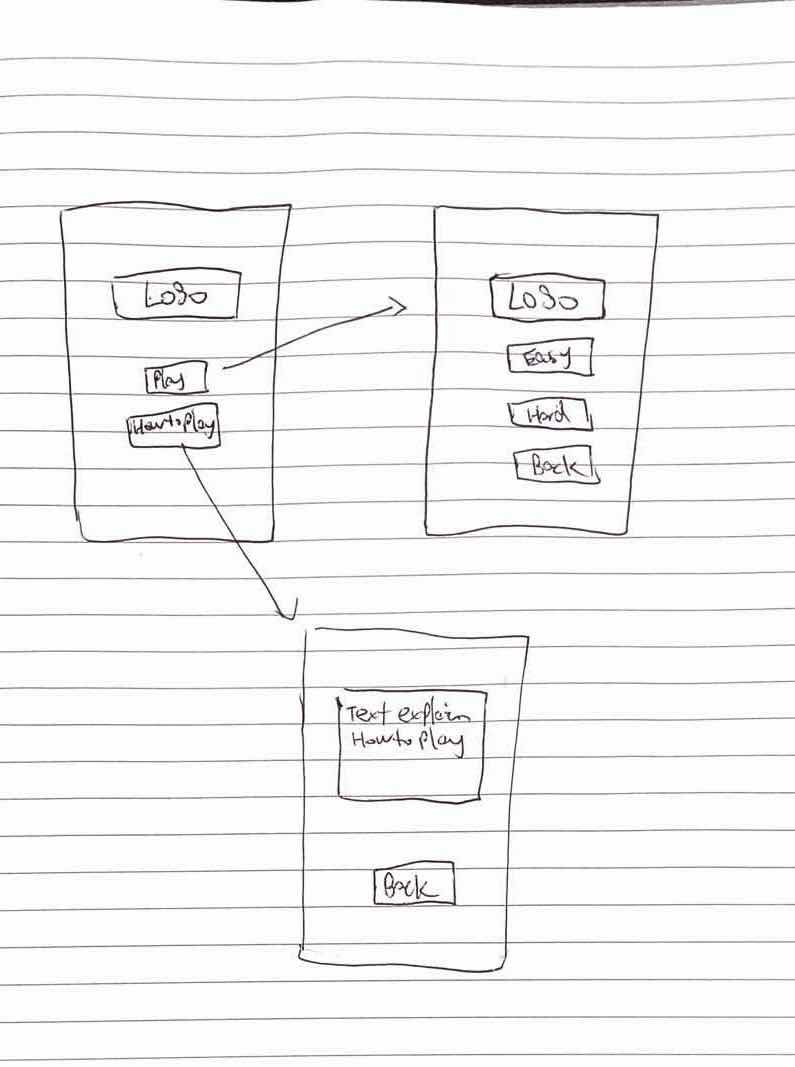 Logo
Play
How to play
Logo
Easy
Hard
Back
Text explain
How to play
Back